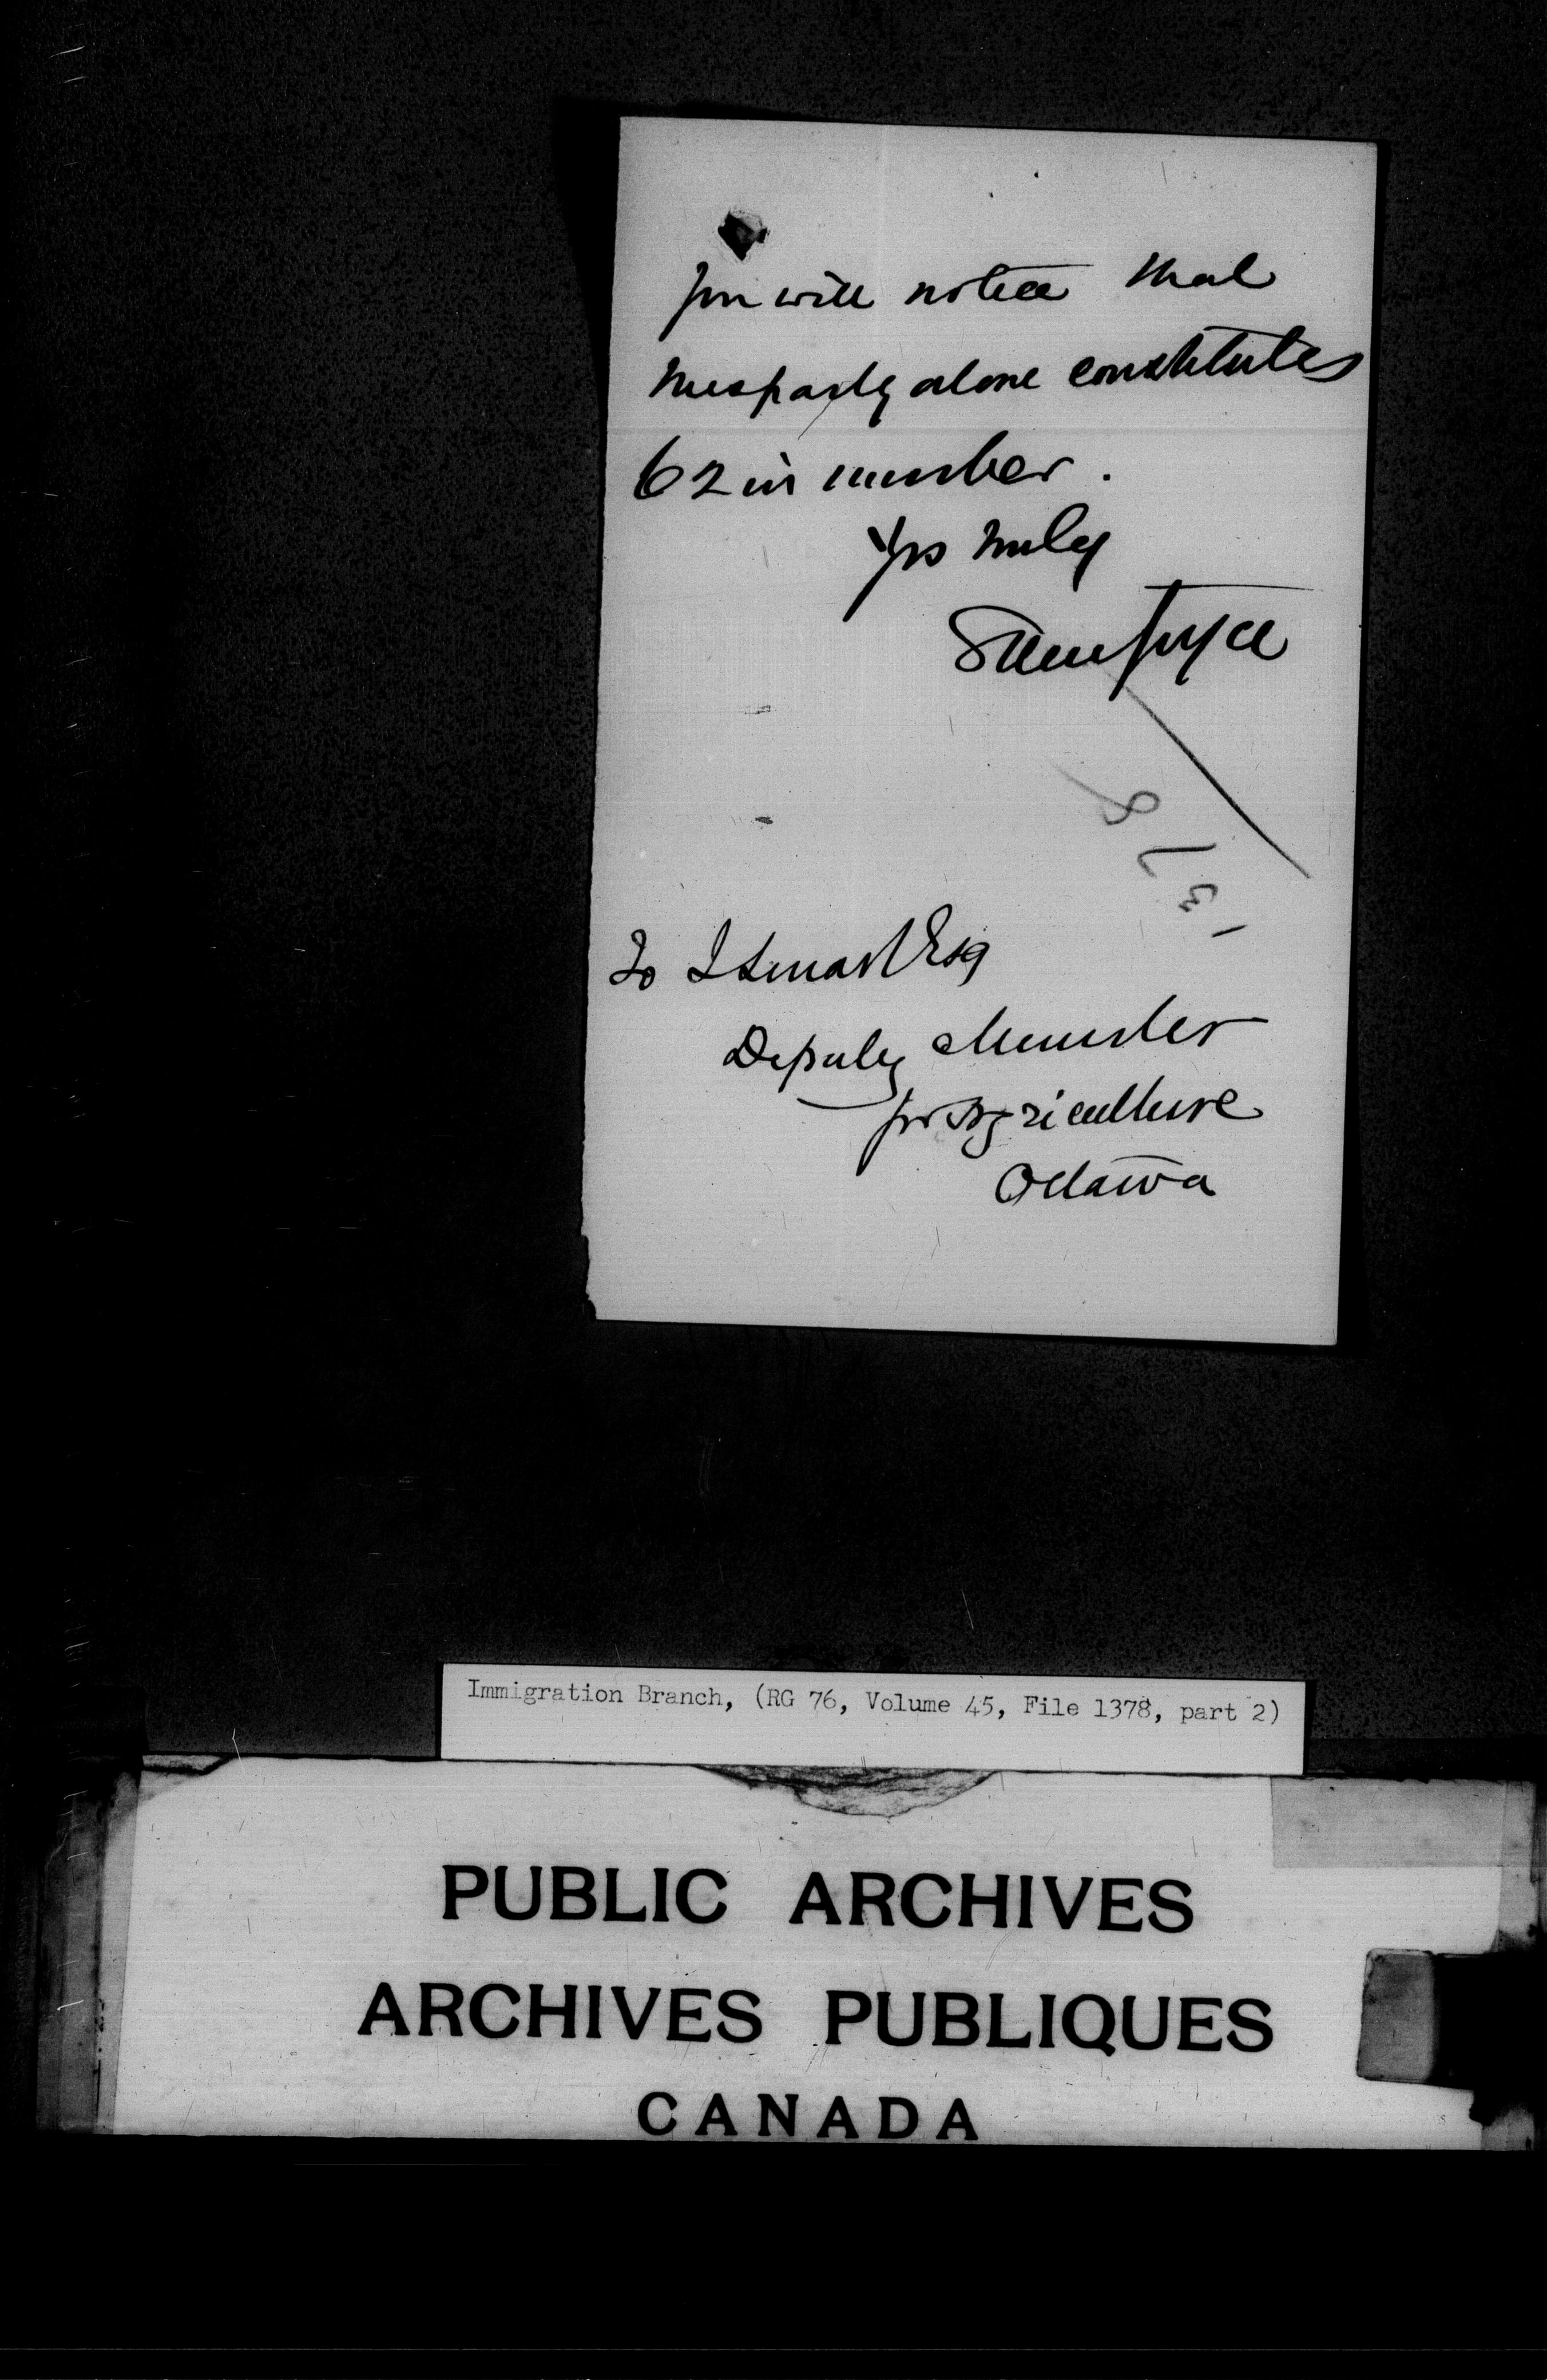 you will notice that
this party alone constitutes
62 in number.
Yrs truly
1378
To J Smart Esq
Deputy Minister
for Agriculture
Ottawa
Immigration Branch, (RG 76, Volume 45, File 1378, part 2)
PUBLIC ARCHIVES
ARCHIVES PUBLIQUES
CANADA